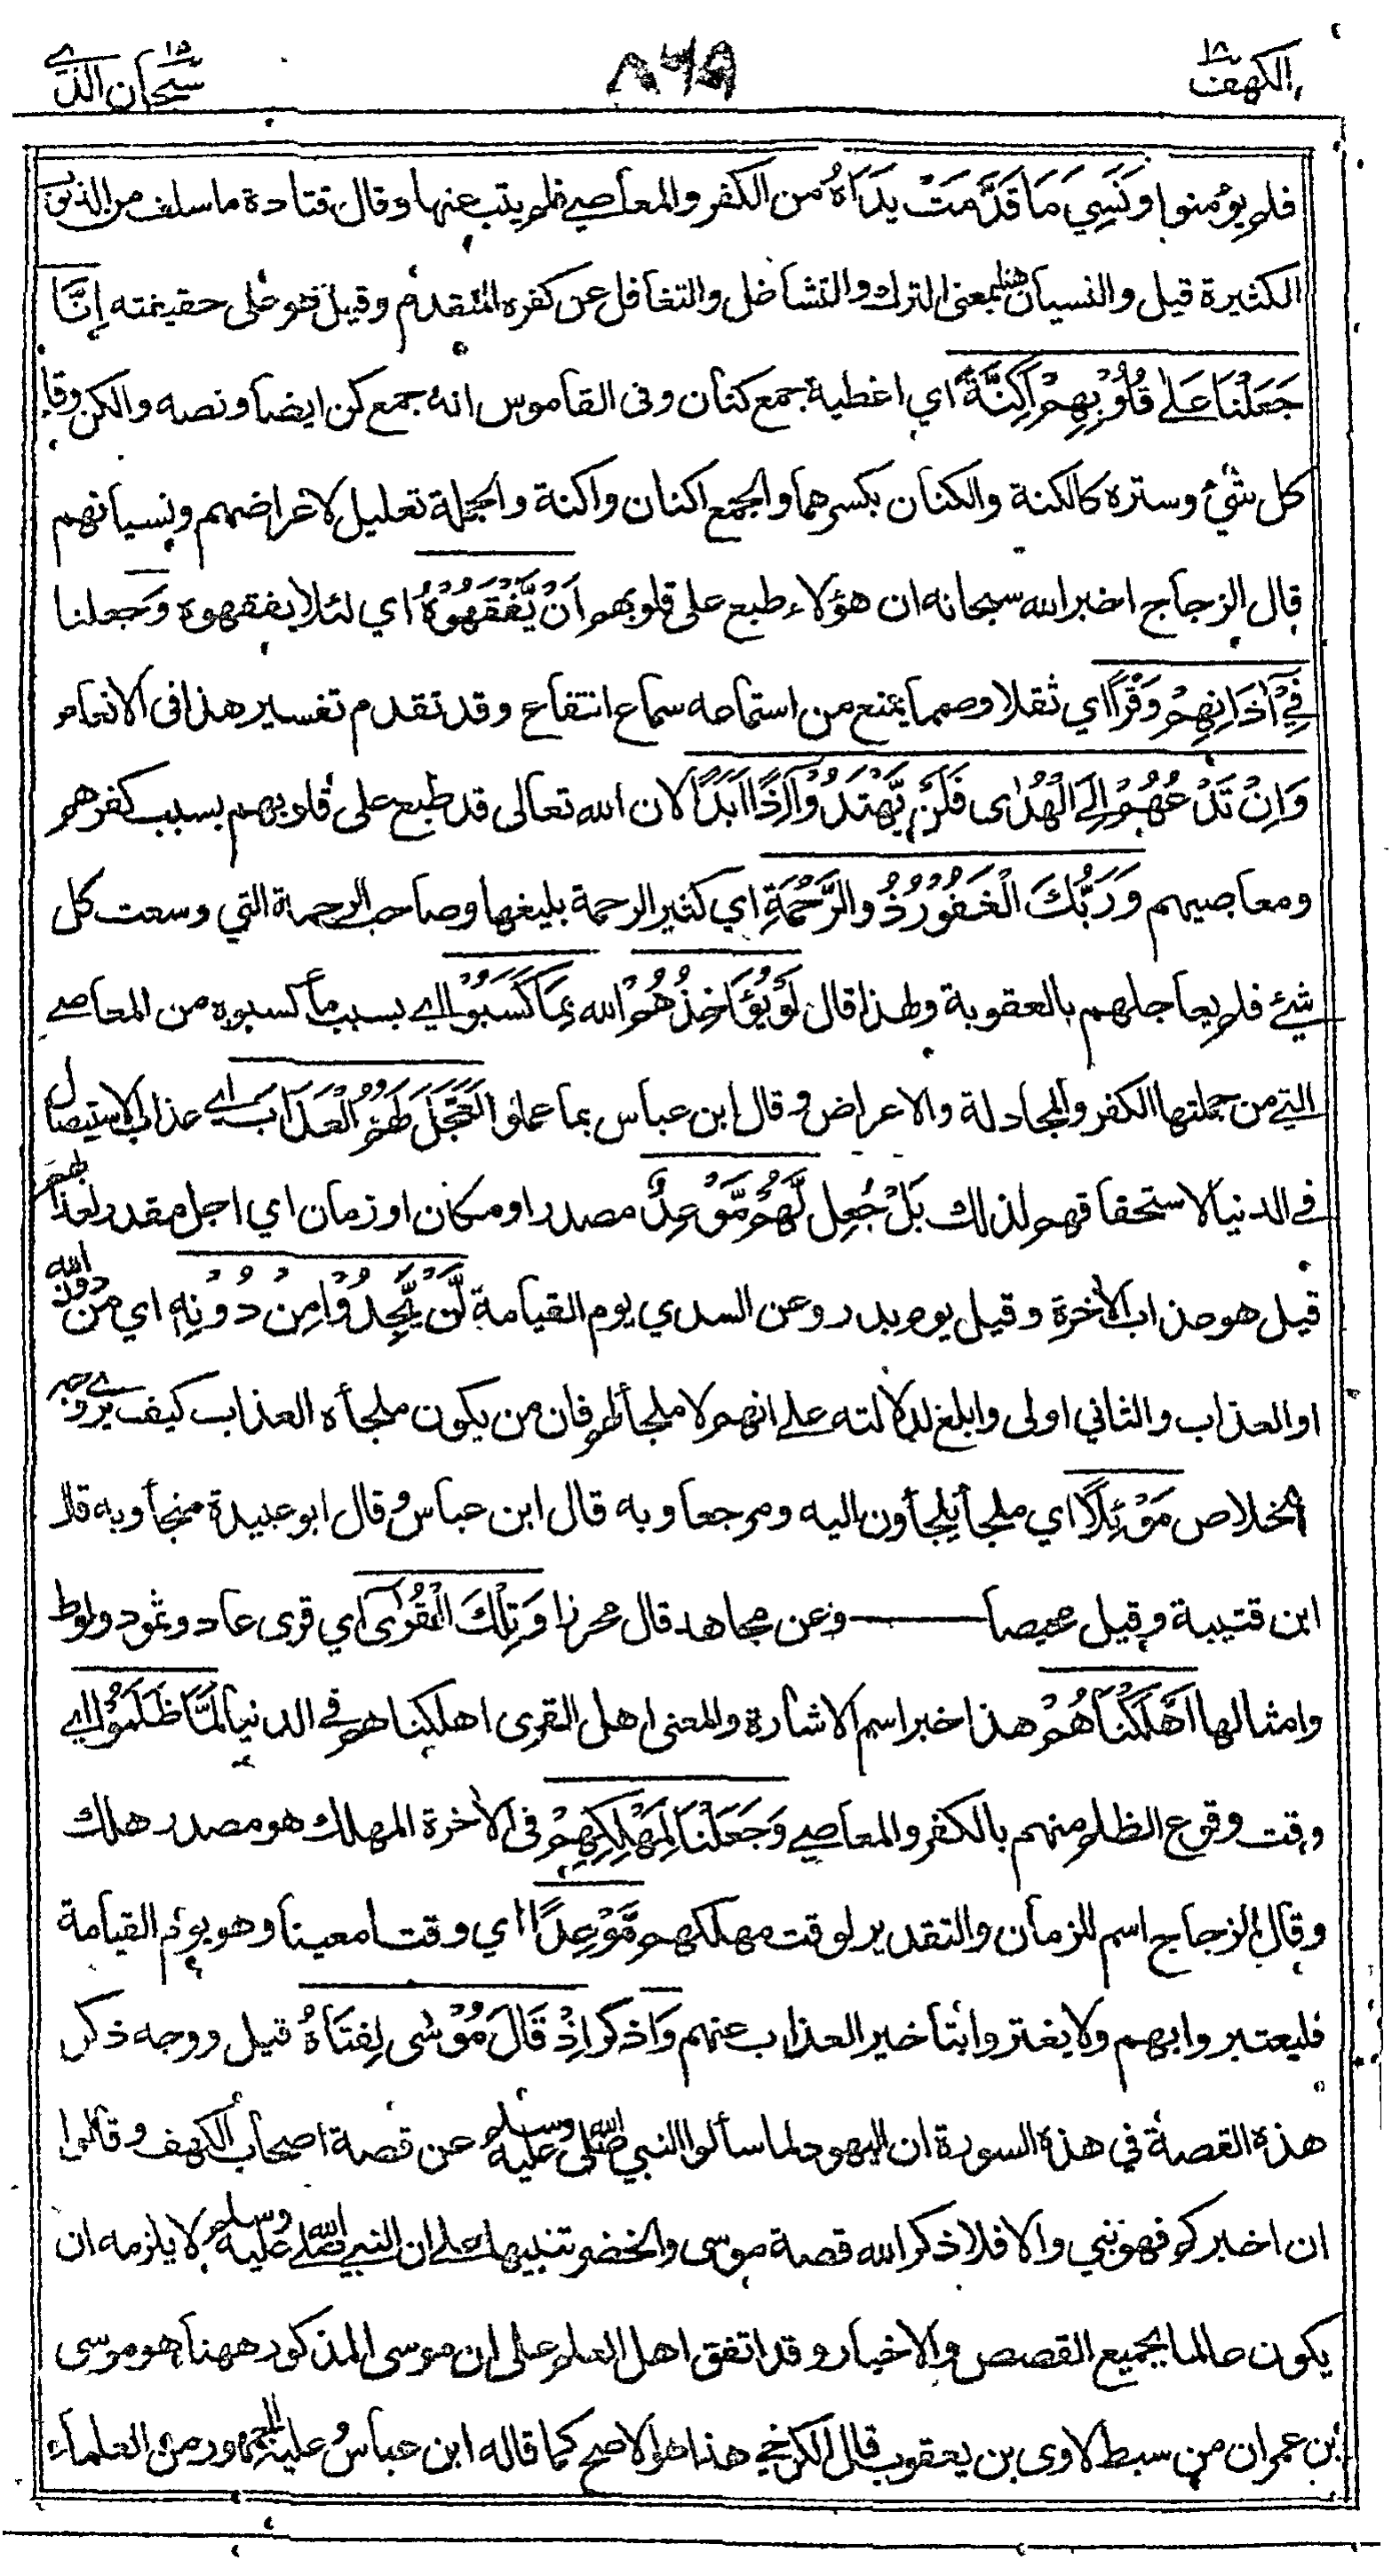 الكهف ١٨
٨٦٩
سبحان الذي ١٥
فلم يؤمنوا وَنَسِيَ مَا قَدَّمَتْ يَدَاهُ من الكفر والمعاصي فلم يتب عنها وقال قتادة ما سلف من الذنوب
الكثيرة قيل والنسيان هنا بمعنى الترك والتشاغل والتغافل عن كفره المتقدم وقيل هو على حقيقته إِنَّا
جَعَلْنَا عَلٰى قُلُوْبِهِمْ اَكِنَّةً اي اغطية جمع كنان وفى القاموس انه جمع كن ايضا ونصه والكن وقاء
كل شئ وستره كالكنة والكنان بكسرهما والجمع اكنان واكنة والجملة تعليل لاعراضهم ونسيانهم
قال الزجاج اخبر الله سبحانه ان هؤلاء طبع على قلوبهم اَنْ يَّفْقَهُوْهُ اي لئلا يفقهوه وَجعلنا
فِيْ اٰذَانِهِمْ وَقْرًا اي ثقلا وصمما يمنع من استماعه سماع انتفاع وقد تقدم تفسير هذا فى الانعام
وَاِنْ تَدْعُهُمْ اِلَى الْهُدٰى فَلَنْ يَّهْتَدُوْا اِذًا اَبَدًا لان الله تعالى قد طبع على قلوبهم بسبب كفرهم
ومعاصيهم وَرَبُّكَ الْغَفُوْرُ ذُو الرَّحْمَةِ اي كثير الرحمة بليغها وصاحب الرحمة التي وسعت كل
شيئ فلم يعاجلهم بالعقوبة ولهذا قال لَوْ يُؤَاخِذُهُمْ الله بِمَا كَسَبُوْا اي بسبب ما كسبوه من المعاصي
التي من جملتها الكفر والمجادلة والاعراض وقال ابن عباس بما عملوا لَعَجَّلَ لَهُمُ الْعَذَابَ اي عذاب الاستيصال
في الدنيا لاستحقاقهم لذلك بَلْ جُعِل لَّهُمْ مَّوْعِدٌ مصدر او مكان او زمان اي اجل مقدر لعذابهم
قيل هو عذاب الاخرة وقيل يوم بدر وعن السدي يوم القيامة لَّنْ يَّجِدُوْا مِنْ دُوْنِهٖ اي من دون الله
او العذاب والثاني اولى وابلغ لدلالته على انهم لا ملجأ لهم فان من يكون ملجأه العذاب كيف يرى وجه
الخلاص مَوْئِلًا اي ملجأ يلجأون اليه ومرجعا وبه قال ابن عباس وقال ابو عبيدة منجأ وبه قال
ابن قتيبة وقيل محيصا وعن مجاهد قال محرزا وَتِلْكَ الْقُرٰى اي قرى عاد وثمود ولوط
وامثالها اَهْلَكْنَاهُمْ هذا خبر اسم الاشارة والمعنى اهل القرى اهلكناهم في الدنيا لَمَّا ظَلَمُوْا اي
وقت وقوع الظلم منهم بالكفر والمعاصي وَجَعَلْنَا لِمَهْلِكِهِمْ فى الاخرة المهلك هو مصدر هلك
وقال الزجاج اسم للزمان والتقدير لوقت مهلكهم مَّوْعِدًا اي وقتا معينا وهو يوم القيامة
فليعتبروا بهم ولا يغتروا بتأخير العذاب عنهم وَاذكر اِذْ قَالَ مُوْسٰى لِفَتَاهُ قيل ووجه ذكر
هذه القصة في هذه السورة ان اليهود لما سألوا النبي صلى الله عليه وسلم عن قصة اصحاب الكهف وقالوا
ان اخبركم فهو نبي والا فلا ذكر الله قصة موسى والخضر تنبيها على ان النبي صلى الله عليه وسلم لا يلزمه ان
يكون عالما بجميع القصص والاخبار وقد اتفق اهل العلم على ان موسى المذكور ههنا هو موسى
بن عمران من سبط لاوى بن يعقوب قال الكرخي هذا هو الاصح كما قاله ابن عباس وعليه الجمهور من العلماء